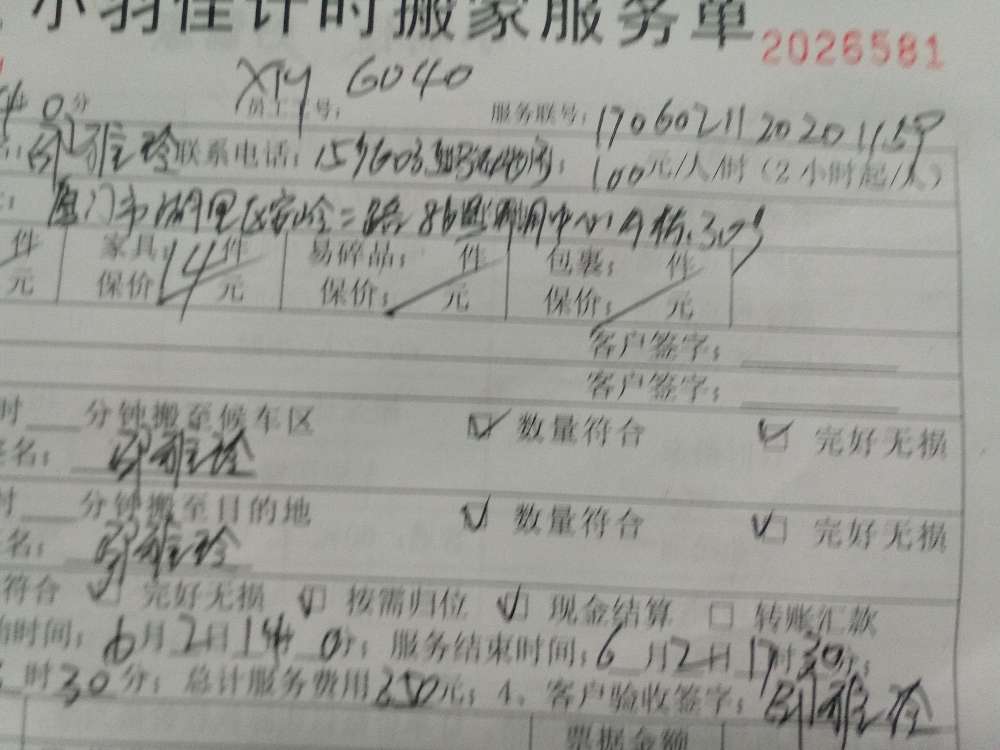 小羽佳计时搬家服务单 2026581
分 员工工号: XTY 6040 服务联号: 1706021120201159
联系电话: 100元/人/时(2小时起/人)
厦门市湖里区
件 家具: 14 件 易碎品: 件 包裹: 件
元 保价 元 保价: 元 保价: 元
客户签字:
客户签字:
时 分钟搬至候车区 数量符合 完好无损
签名:
时 分钟搬至目的地 数量符合 完好无损
名:
符合 完好无损 按需归位 现金结算 转账汇款
始时间: 6月2日14时0分; 服务结束时间: 6月2日17时30分;
时30分; 总计服务费用350元; 4、客户验收签字:
票据金额